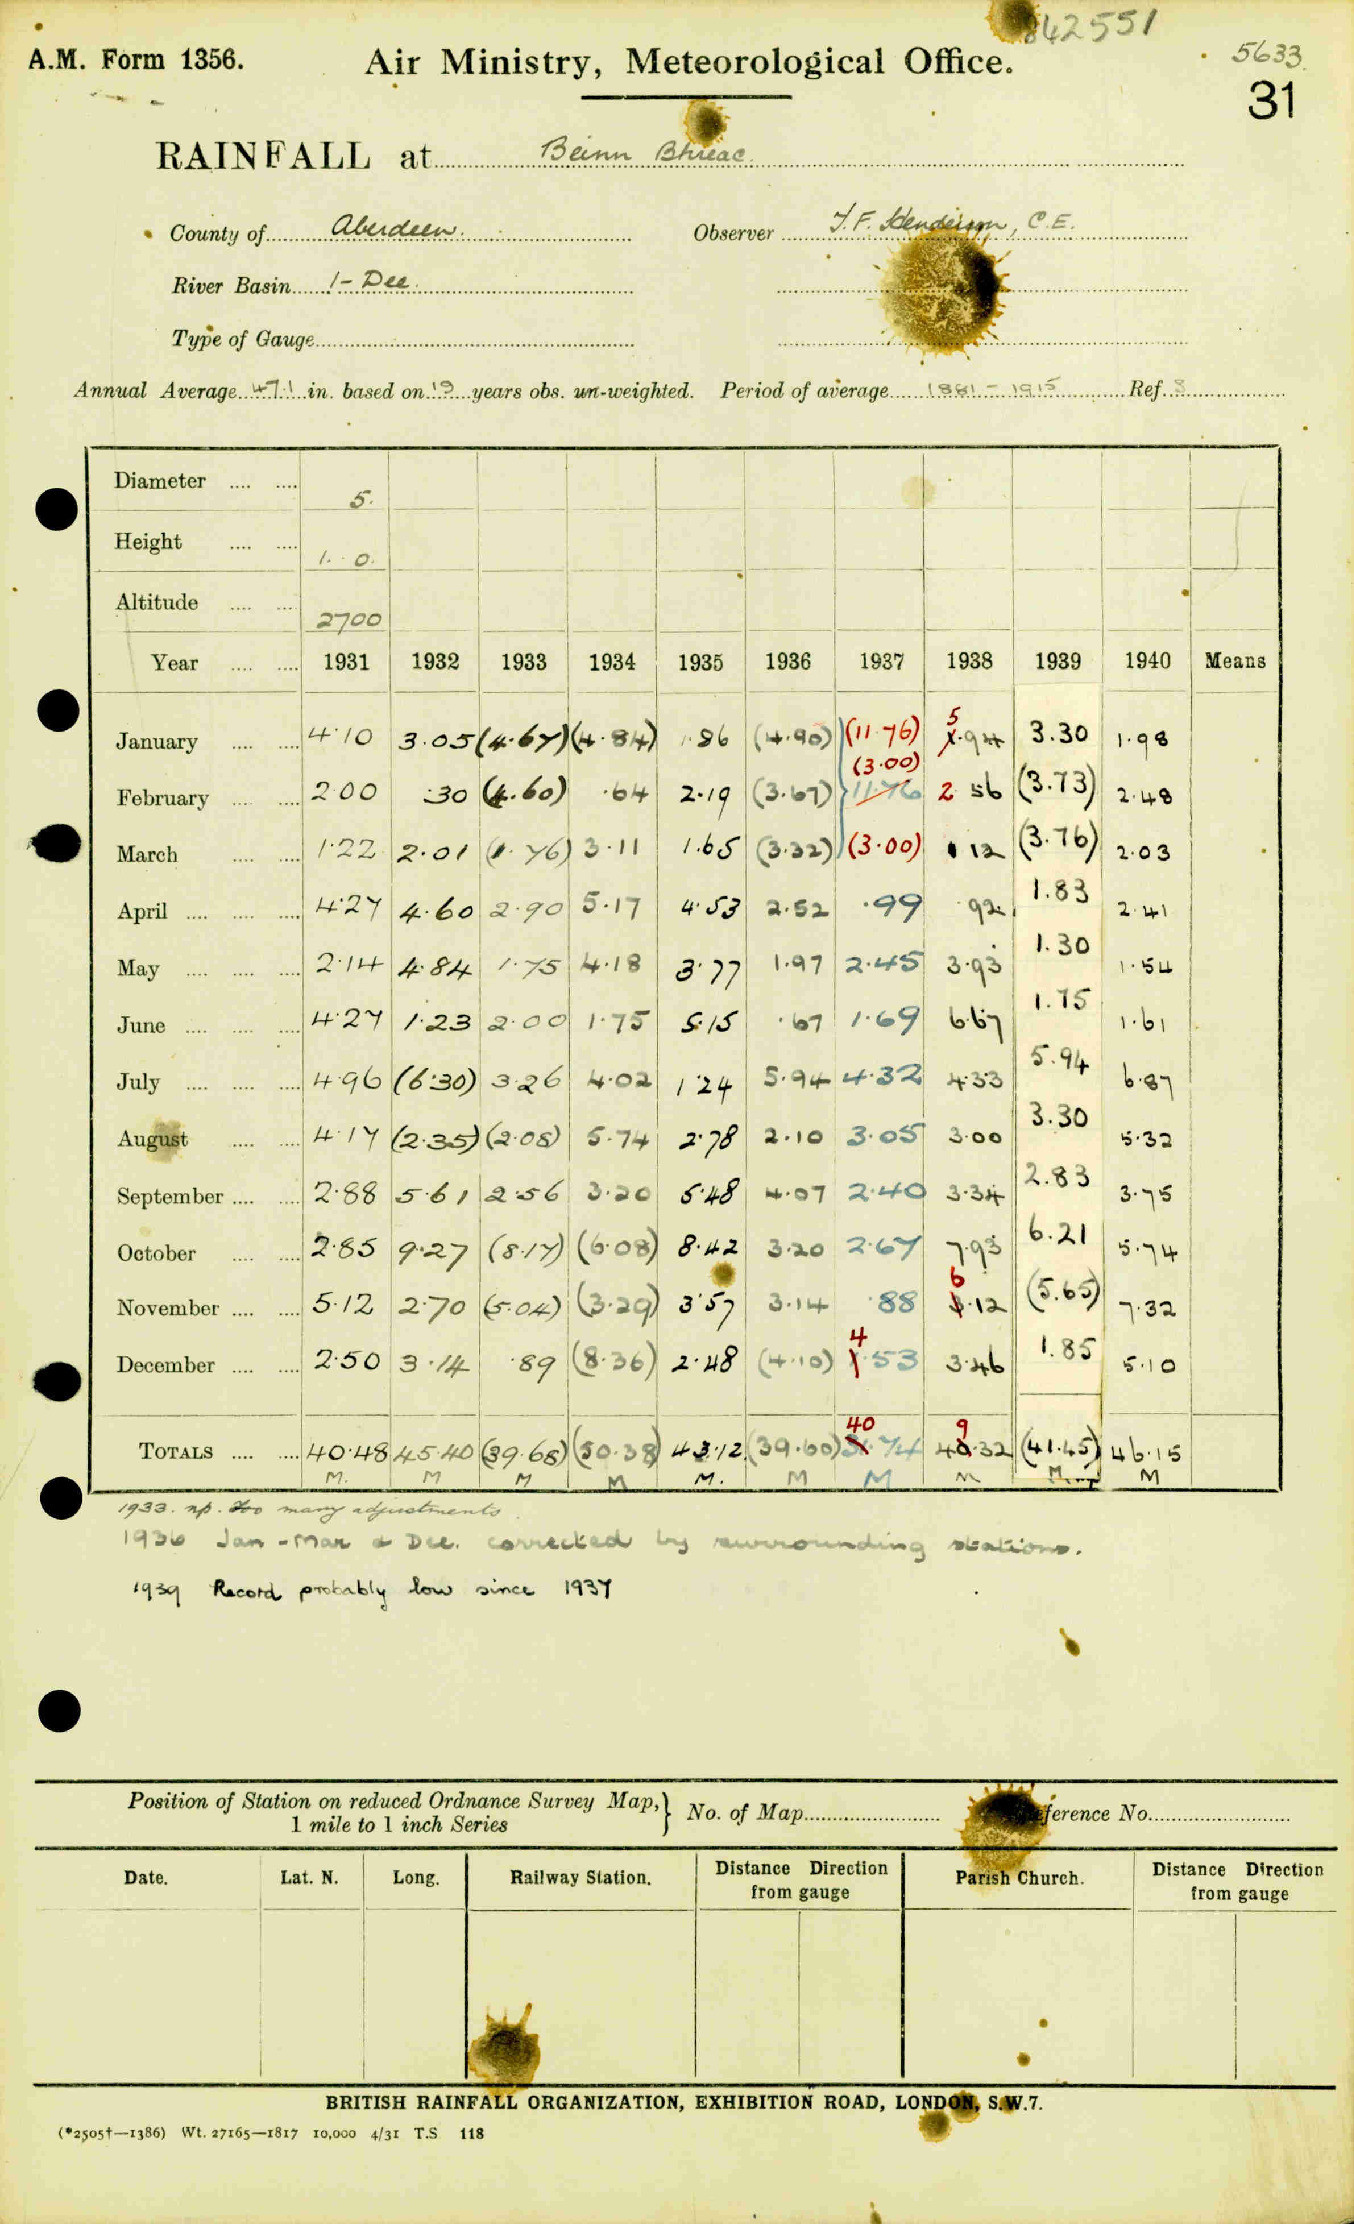 842551
5633
A.M. Form 1356. Air Ministry, Meteorological Office.
31
RAINFALL at Beinn Bhreac
County of Aberdeen. Observer J.F. Henderson, C.E.
River Basin 1 - Dee.
Type of Gauge
Annual Average 47.1 in. based on 19 years obs. un-weighted. Period of average 1881 - 1915 Ref. S
Diameter 5.
Height 1. 0.
Altitude 2700
Year 1931 1932 1933 1934 1935 1936 1937 1938 1939 1940 Means
5
January 4.10 3.05 (4.67) (4.84) 1.86 (4.90) (11.76) 1.94 3.30 1.98
(3.00)
February 2.00 .30 (4.60) .64 2.19 (3.67) 11.76 2 56 (3.73) 2.48
March 1.22 2.01 (1.76) 3.11 1.65 (3.32) (3.00) 1 12 (3.76) 2.03
April 4.27 4.60 2.90 5.17 4.53 2.52 .99 .92 1.83 2.41
May 2.14 4.84 1.75 4.18 3.77 1.97 2.45 3.93 1.30 1.54
June 4.27 1.23 2.00 1.75 5.15 .67 1.69 6.67 1.75 1.61
July 4.96 (6.30) 3.26 4.02 1.24 5.94 4.32 4.33 5.94 6.87
August 4.17 (2.35) (2.08) 5.74 2.78 2.10 3.05 3.00 3.30 5.32
September 2.88 5.61 2.56 3.20 5.48 4.07 2.40 3.34 2.83 3.75
October 2.85 9.27 (8.17) (6.08) 8.42 3.20 2.67 7.93 6.21 5.74
6
November 5.12 2.70 (5.04) (3.29) 3.57 3.14 .88 .12 (5.65) 7.32
4
December 2.50 3.14 .89 (8.36) 2.48 (4.10) 1.53 3.46 1.85 5.10
40 9
TOTALS 40.48 45.40 (39.68) (50.38) 43.12 (39.60) 3.74 40.32 (41.45) 46.15
M. M M M M. M M M M
1933. np. too many adjustments.
1936 Jan - Mar & Dec. corrected by surrounding stations.
1939 Record probably low since 1937
Position of Station on reduced Ordnance Survey Map,} No. of Map Reference No.
1 mile to 1 inch Series
Date. Lat. N. Long. Railway Station. Distance Direction from gauge Parish Church. Distance Direction from gauge
BRITISH RAINFALL ORGANIZATION, EXHIBITION ROAD, LONDON, S.W.7.
(*2505†—1386) Wt. 27165—1817 10,000 4/31 T.S 118